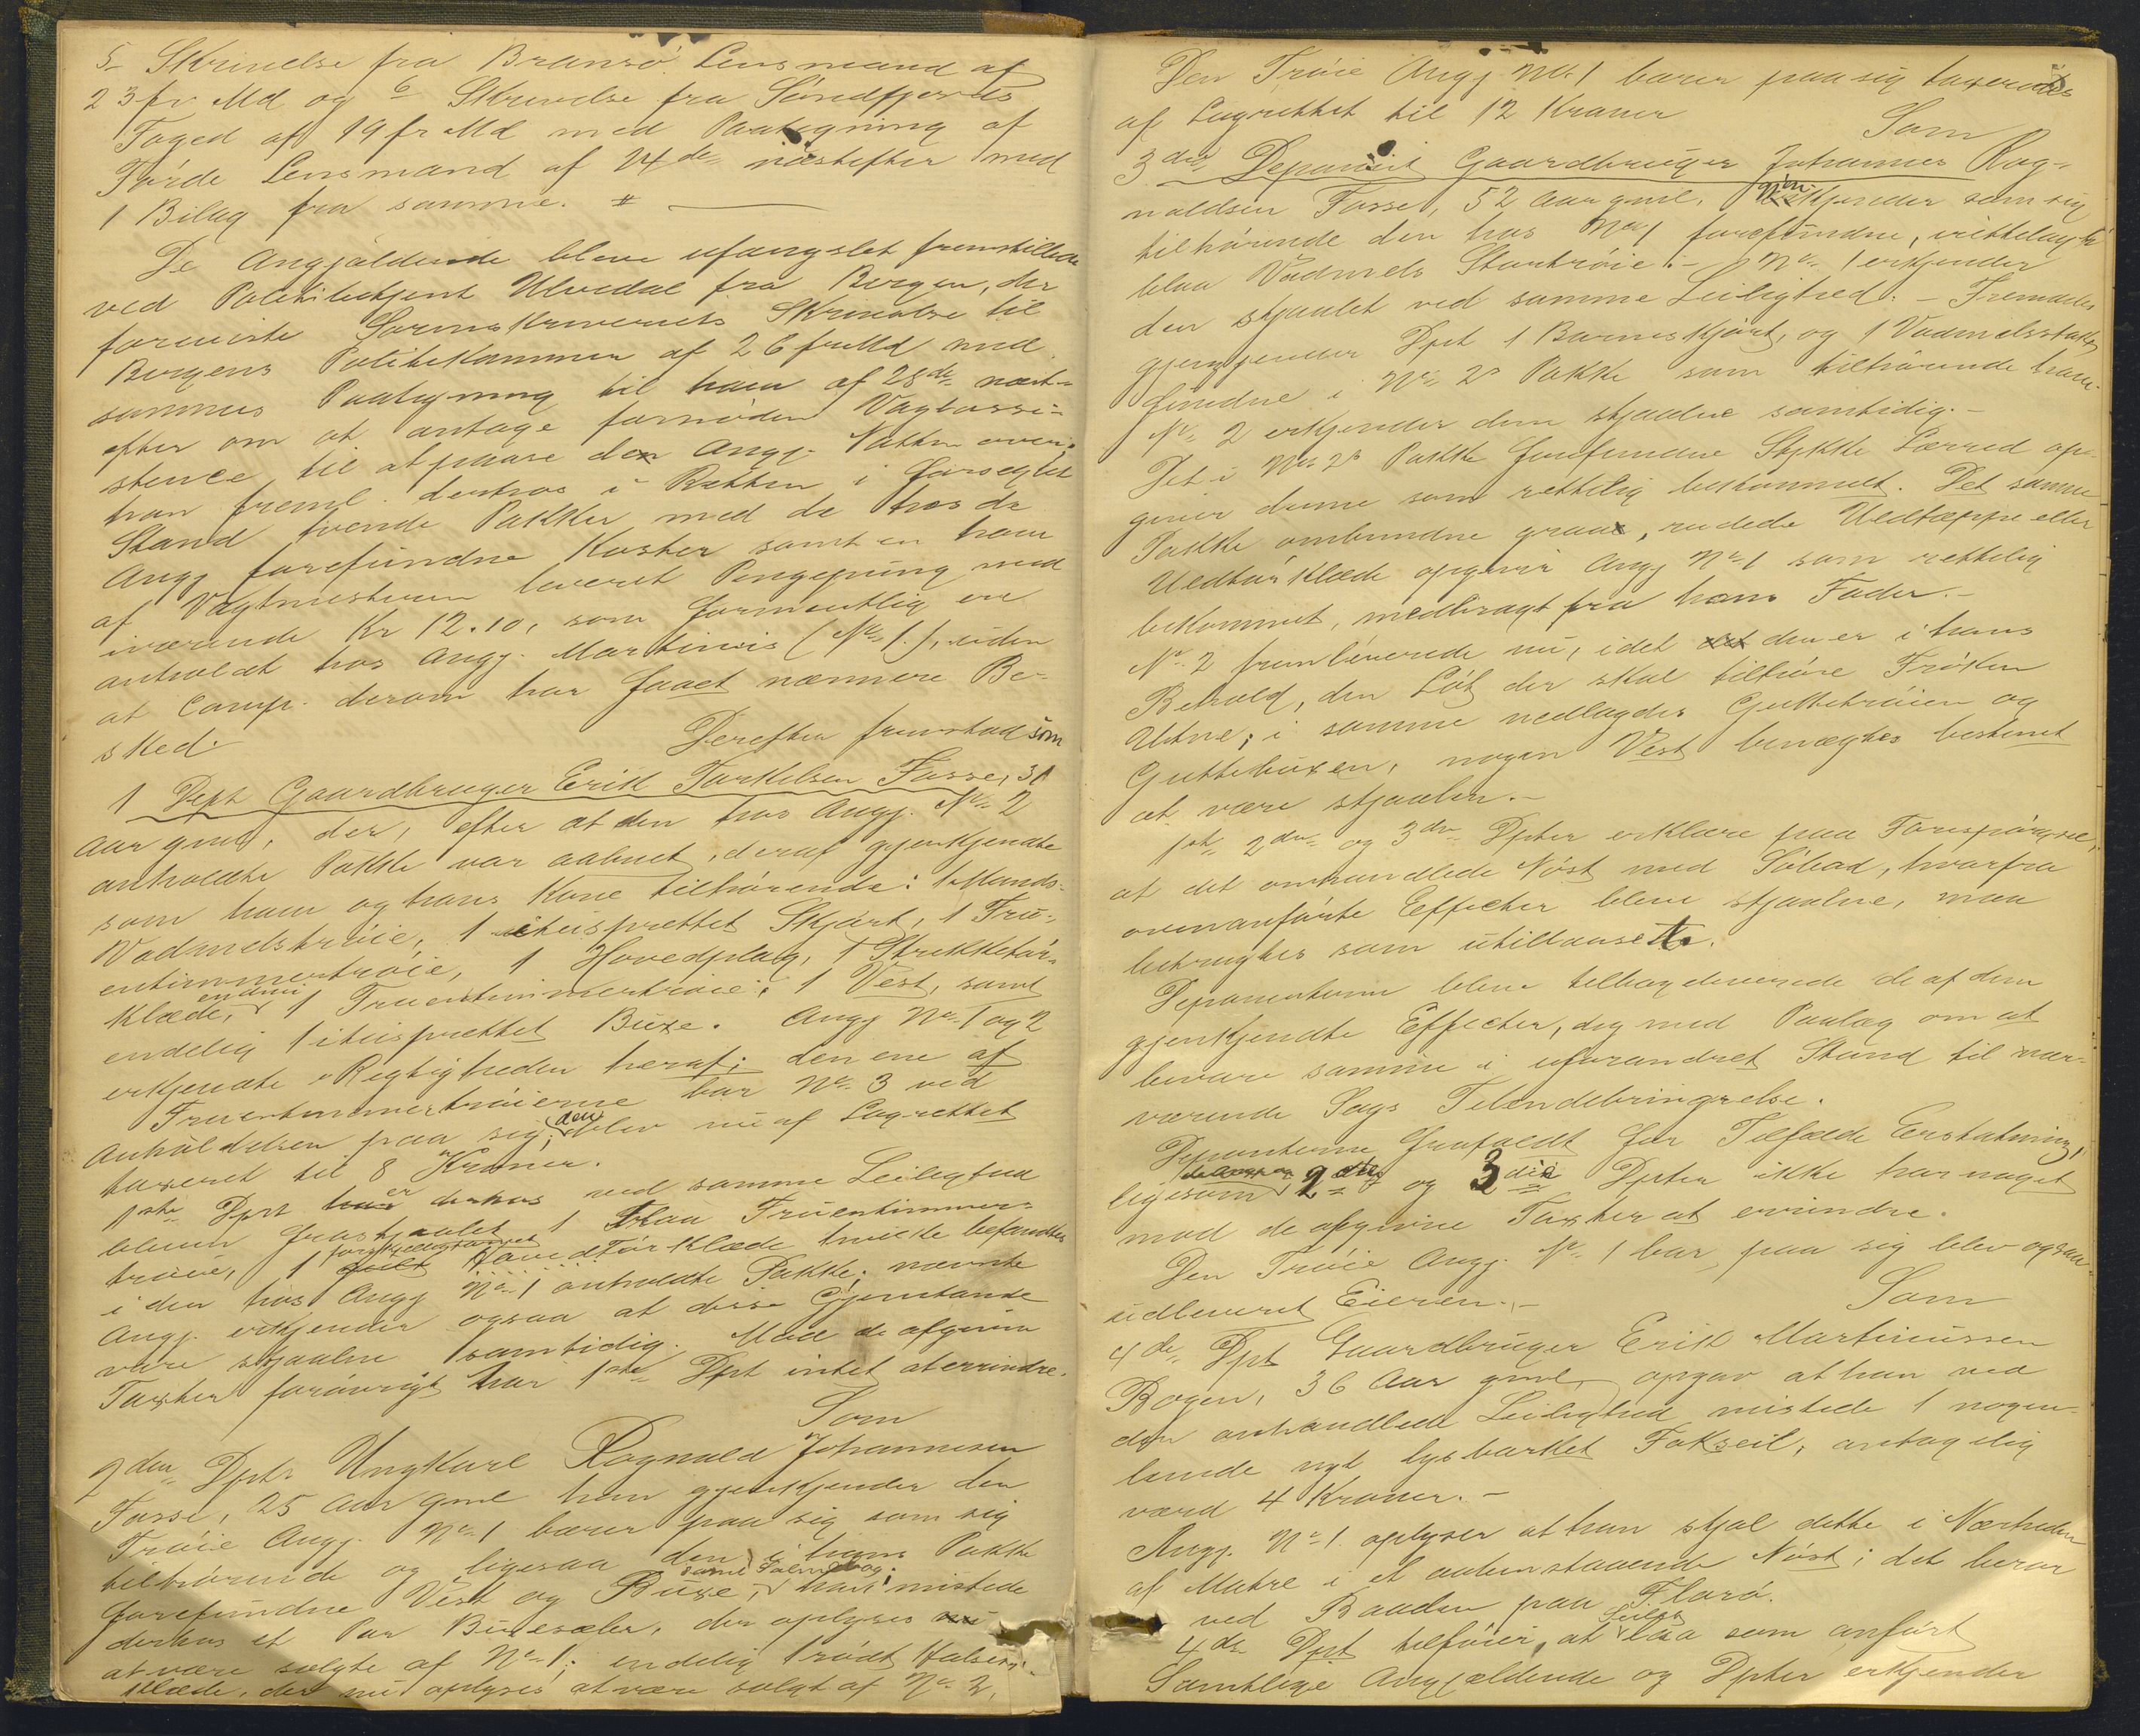 5 Skrivelse fra Bremsø Lensmand af
23 fr Md og 6 Skrivelse fra Søndfjords
Foged af 19 fr Md med Paategning af
Førde Lensmand af 24de næstefter med
1 Bilag fra samme. #
De Angjældende bleve ufængslet fremstillede
ved Politibetjent Ulvedal fra Bergen, der
foreviste Sorenskriveriets Skrivelse til
Bergens Politikammer af 26 fr Md med
sammes Paategning til ham af 28de næst-
efter om at antage fornøden Vagtassi-
stence til at passe den Angj. Natten over;
han freml. derhos i Retten i forseglet
Stand tvende Pakker med de hos de
Angj forefundne Koster samt en ham
af Vagtmesteren leveret Pengepung med
iværende Kr 12.10, som formentlig er
anholdt hos Angj. Martinus (No 1.), uden
at Comp. derom har faaet nærmere Be-
sked.
Derefter fremstod som
1 Dept Gaardbruger Erik Torkelsen Fosse, 31
Aar gml, der, efter at den hos Angj. No 2
anholdte Pakke var aabnet, deraf gjenkjendte
som ham og hans Kone tilhørende: 1 Mands-
Vadmelstrøie, 1 itusprættet Skjørt, 1 Fru-
entimmertrøie, 1 Hovedplag, 1 Strikketør-
klæde, endnu 1 Fruentimmertrøie, 1 Vest, samt
endelig 1 itusprættet Buxe. Angj No 1 og 2
erkjendte Rigtigheden heraf; den ene af
Fruentimmertrøierne bar No 3 ved
Anholdelsen paa sig; den blev nu af Lagrettet
taxeret til 8 Kroner.
1ste Dpt er derhos ved samme Leilighed
bleven frastjaalet 1 blaa Fruentimmer-
trøie, 1 Hovedtørklæde hvilke befandtes
i den hos Angj No 1 anholdte Pakke; nævnte
Angj. erkjender ogsaa at disse Gjenstande
vare stjaalne samtidig. Mod de afgivne
Taxter forøvrigt har 1ste Dpt intet at erindre.
Som
2den Dpt Ungkarl Rognald Johannesen
Fosse, 25 Aar gml han gjenkjender den
Trøie Angj. No 1 bærer paa sig som sig
tilhørende og ligesaa den i hans Pakke
forefundne Vest og Buxe, samt Salmebog; han mistede
derhos et Par Buxesæler, der oplyses
at være solgte af No 1; endelig 1 rødt Halstør-
klæde, der nu oplyses at være solgt af No 2,
Den Trøie Angj No 1 bærer paa sig taxeredes
af Lagrettet til 12 Kroner
Som
3die Deponent Gaardbruger Johannes Rog-
naldsen Fosse, 52 Aar gml. Gjenkjender som sig
tilhørende den hos No 1 forefundne, istykker
blaa Vadmels Stortrøie. - No 1 erkjender
den stjaalet ved samme Leilighed. - Fremdeles
gjenkjender Dpt 1 Barneskjørt, og 1 Vadmelsstak
fundne i No 2s Pakke som tilhørende ham.
No 2 erkjender dem stjaalne samtidig. -
Det i No 2s Pakke forefundne Stykke Lærred op-
giver denne som rettelig bekommet. Det samme
Pakke ombundne graae, rudede Uldtæppe eller
Uldtørklæde opgiver Angj No 1 som rettelig
bekommet, medbragt fra hans Fader. -
No 2 fremleverede nu, idet den er i hans
Behold, den Lot der skal tilhøre Frøken
Utne; i samme nedlagdes Guttetrøien og
Guttebuxen, nogen Vest benægtes bestemt
at være stjaalen. -
1ste 2den og 3die Dpter erklære paa Forespørgsel,
at det omhandlede Nøst med Søbod, hvorfra
ovenanførte Effecter bleve stjaalne, maa
betragtes som utillaasede.
Deponenterne bleve tilbageleverede de af dem
gjenkjendte Effecter, dog med Paalæg om at
bevare samme i uforandret Stand til nær-
værende Sags Tilendebringelse.
Deponenterne frafaldt for Tilfælde Erstatning,
ligesom 2den og 3die Dpter ikke har noget
mod de afgivne Taxter at erindre.
Den Trøie Angj. No 1 bar paa sig blev ogsaa
udleveret Eieren. -
Som
4de Dpt Gaardbruger Erik Martinussen
Bogen, 36 Aar gml, opgav at han ved
den omhandlede Leilighed mistede 1 nogen-
lunde nyt lysbarket Fokseil, antagelig
værd 4 Kroner. -
Angj. No 1 oplyser at han stjal dette i Nærheden
af Matre i et aabenstaaende Nøst; det beror
ved Baaden paa Florø.
4de Dpt tilføier, at Seilet laa som anført
Samtlige Angjældende og Dpter erkjender